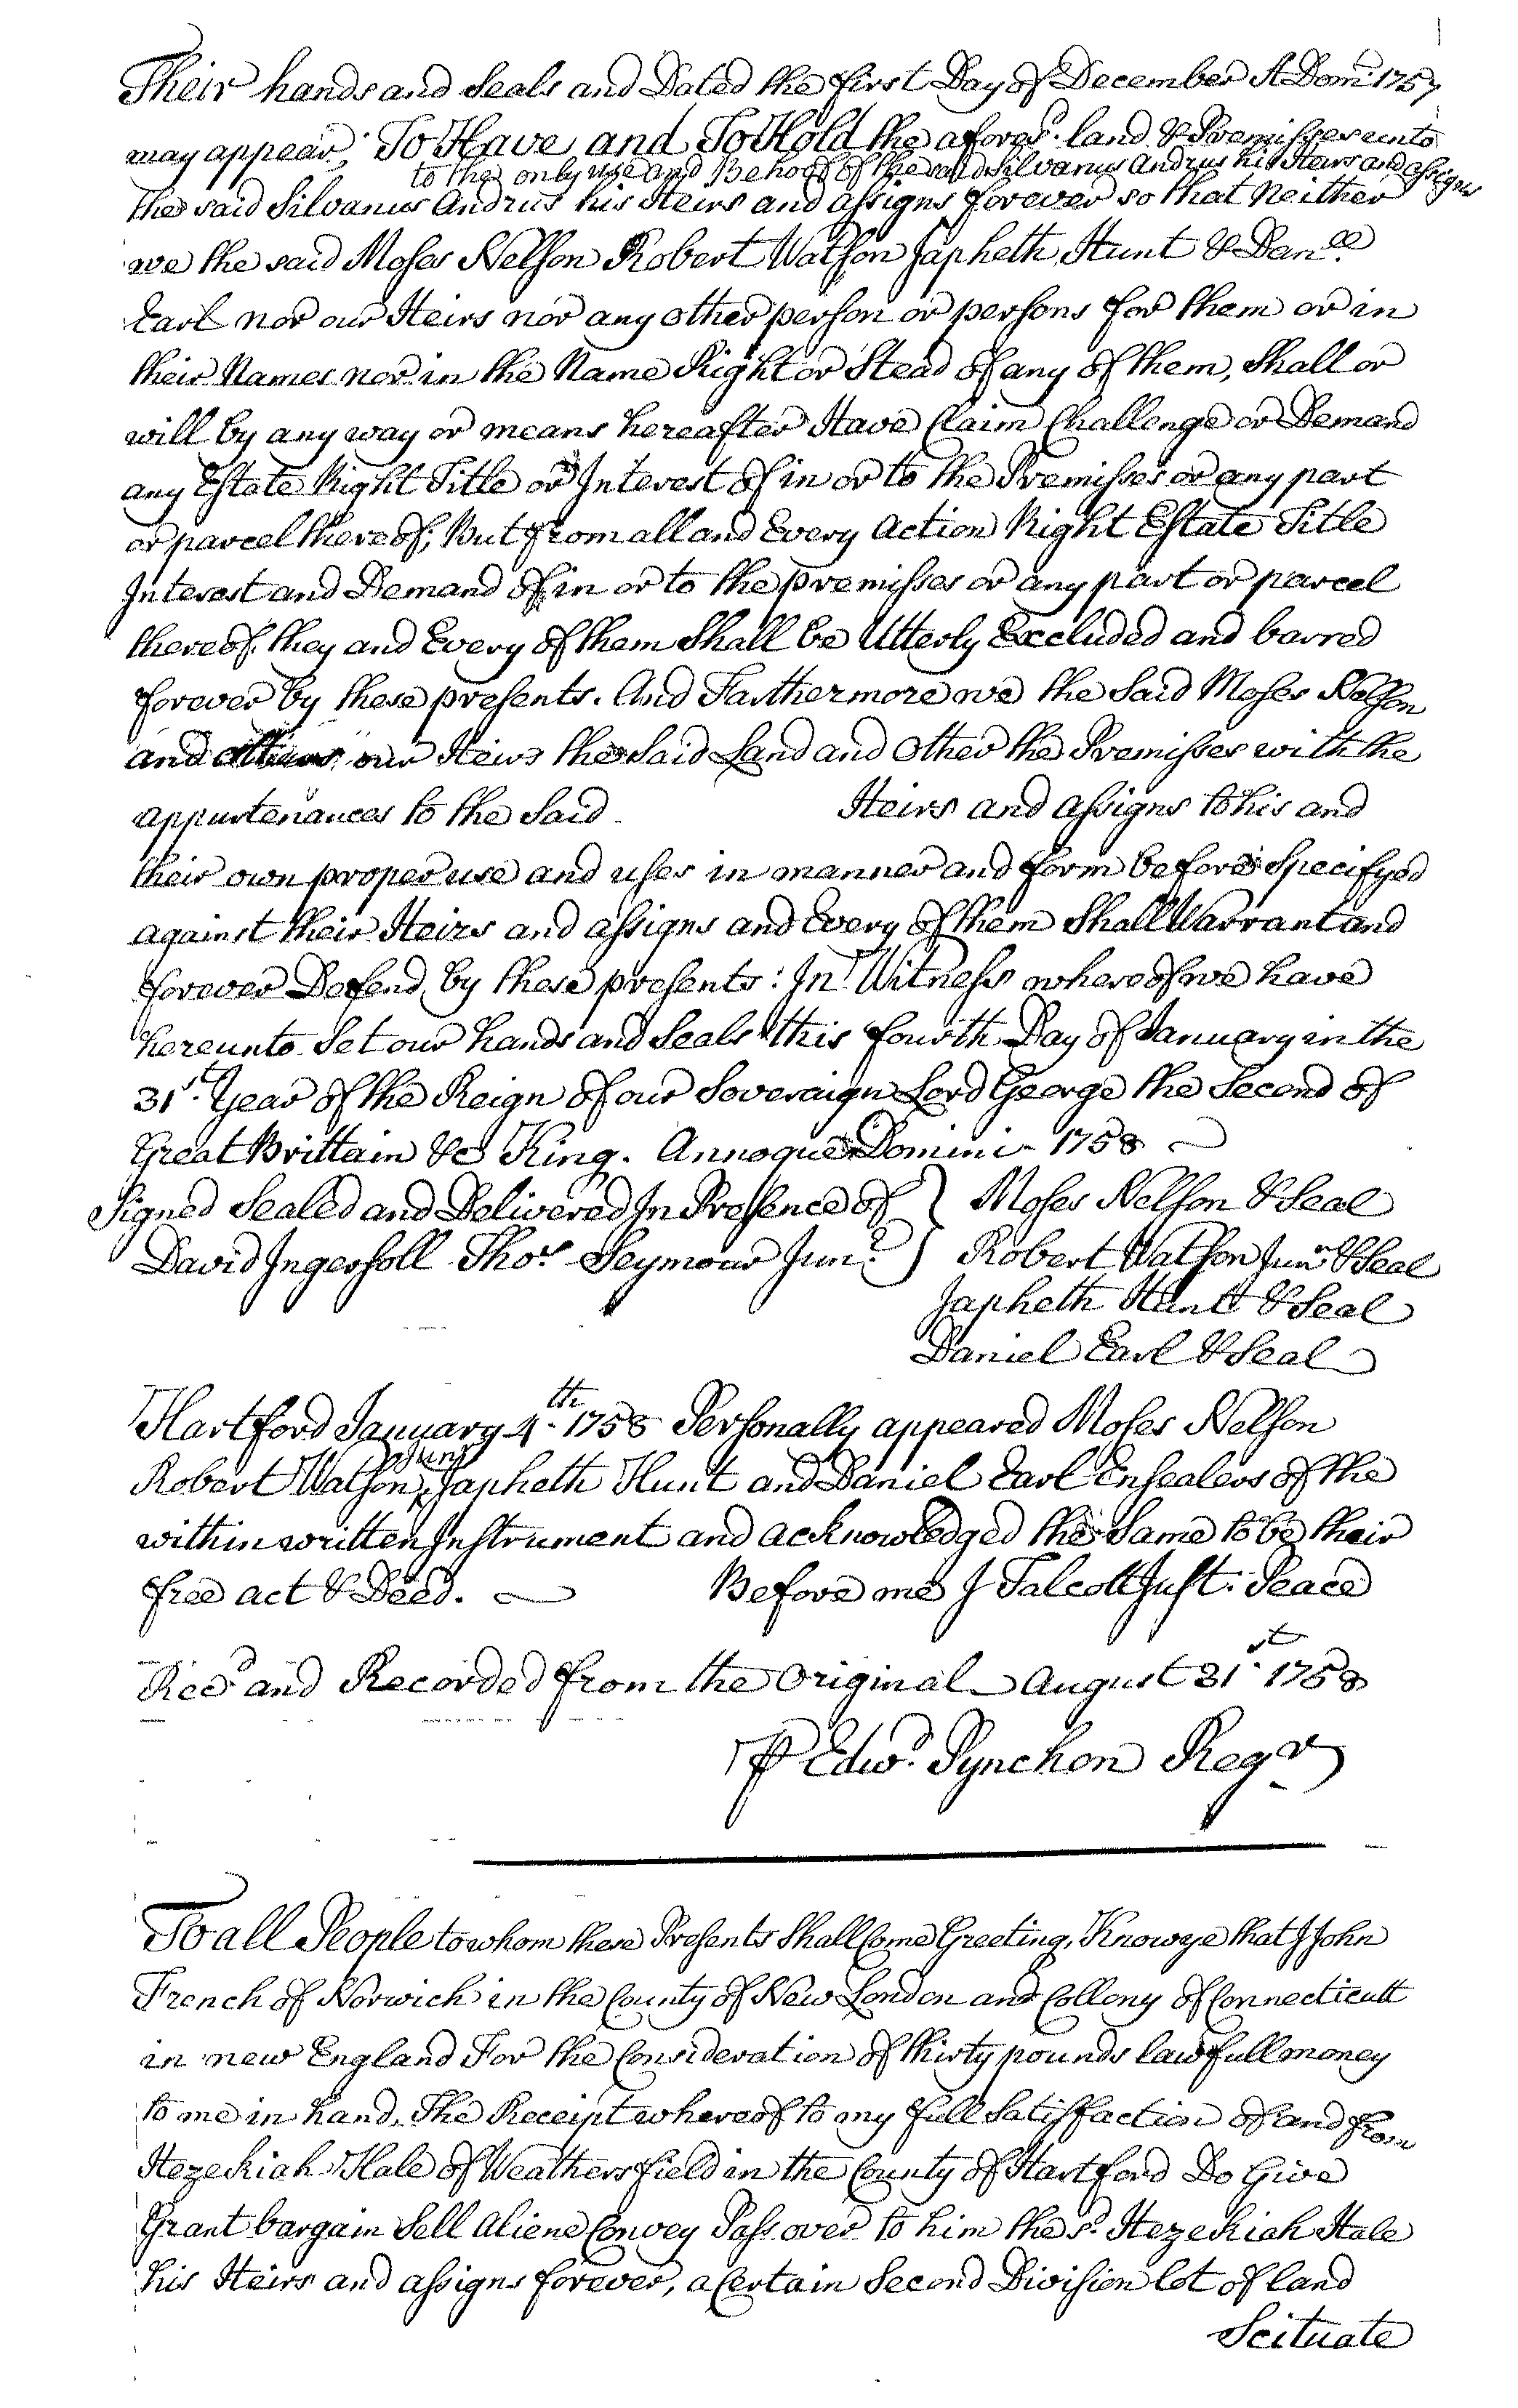 Their hands and Seals and Dated the first Day of December A Dom: 1757
may appear; To Have and To Hold the afores.d land & Premisses unto
to the only use and Behoof of the said Silvanus Andrus his Heirs and assigns
the said Silvanus Andrus his Heirs and assigns forever so that Neither
we the said Moses Nelson Robert Watson Japheth Hunt & Dan.ll
Earl nor our Heirs nor any other person or persons for them or in
their Names nor in the Name Right or Stead of any of them, Shall or
will by any way or means hereafter Have Claim Challenge or Demand
any Estate Right Title or Interest of in or to the Premisses or any part
or parcel thereof; But from all and Every action Right Estate Title
Interest and Demand of in or to the premisses or any part or parcel
thereof. they and Every of them Shall be Utterly Excluded and barred
forever by these presents. And Farthermore we the Said Moses Nelson
and our Heirs the Said Land and Other the Premisses with the
appurtenances to the Said Heirs and assigns to his and
their own proper use and uses in manner and form before Specifyed
against their Heirs and assigns and Every of them Shall Warrant and
forever Defend by these presents: In Witness whereof we have
hereunto Set our hands and Seals this fourth Day of January in the
31.st Year of the Reign of our Soveraign Lord George the Second of
Great Brittain &c King. Annoque Domini 1758
Signed Sealed and Delivered In Presence of } Moses Nelson & Seal
David Ingersoll Tho.s Seymour Jun.r } Robert Watson Jun.r & Seal
Japheth Hunt & Seal
Daniel Earl & Seal
Hartford January 4.th 1758 Personally appeared Moses Nelson
Jun.r
Robert Watson, Japheth Hunt and Daniel Earl Ensealers of the
within written Instrument and acknowledged the Same to be their
free act & Deed. Before me J Talcott Just: Peace
Rec.d and Recorded from the Original August 31.st 1758
P Edw.d Pynchon Reg.r
To all People to whom these Presents Shall Come Greeting, Know ye that I John
French of Norwich in the County of New London and Collony of Connecticutt
in new England For the Consideration of thirty pounds lawfull money
to me in hand, The Receipt whereof to my full Satisfaction of and from
Hezekiah Hale of Weathersfield in the County of Hartford Do Give
Grant bargain Sell Aliene Convey Pass over to him the s.d Hezekiah Hale
his Heirs and assigns forever, a Certain Second Division lot of land
Scituate